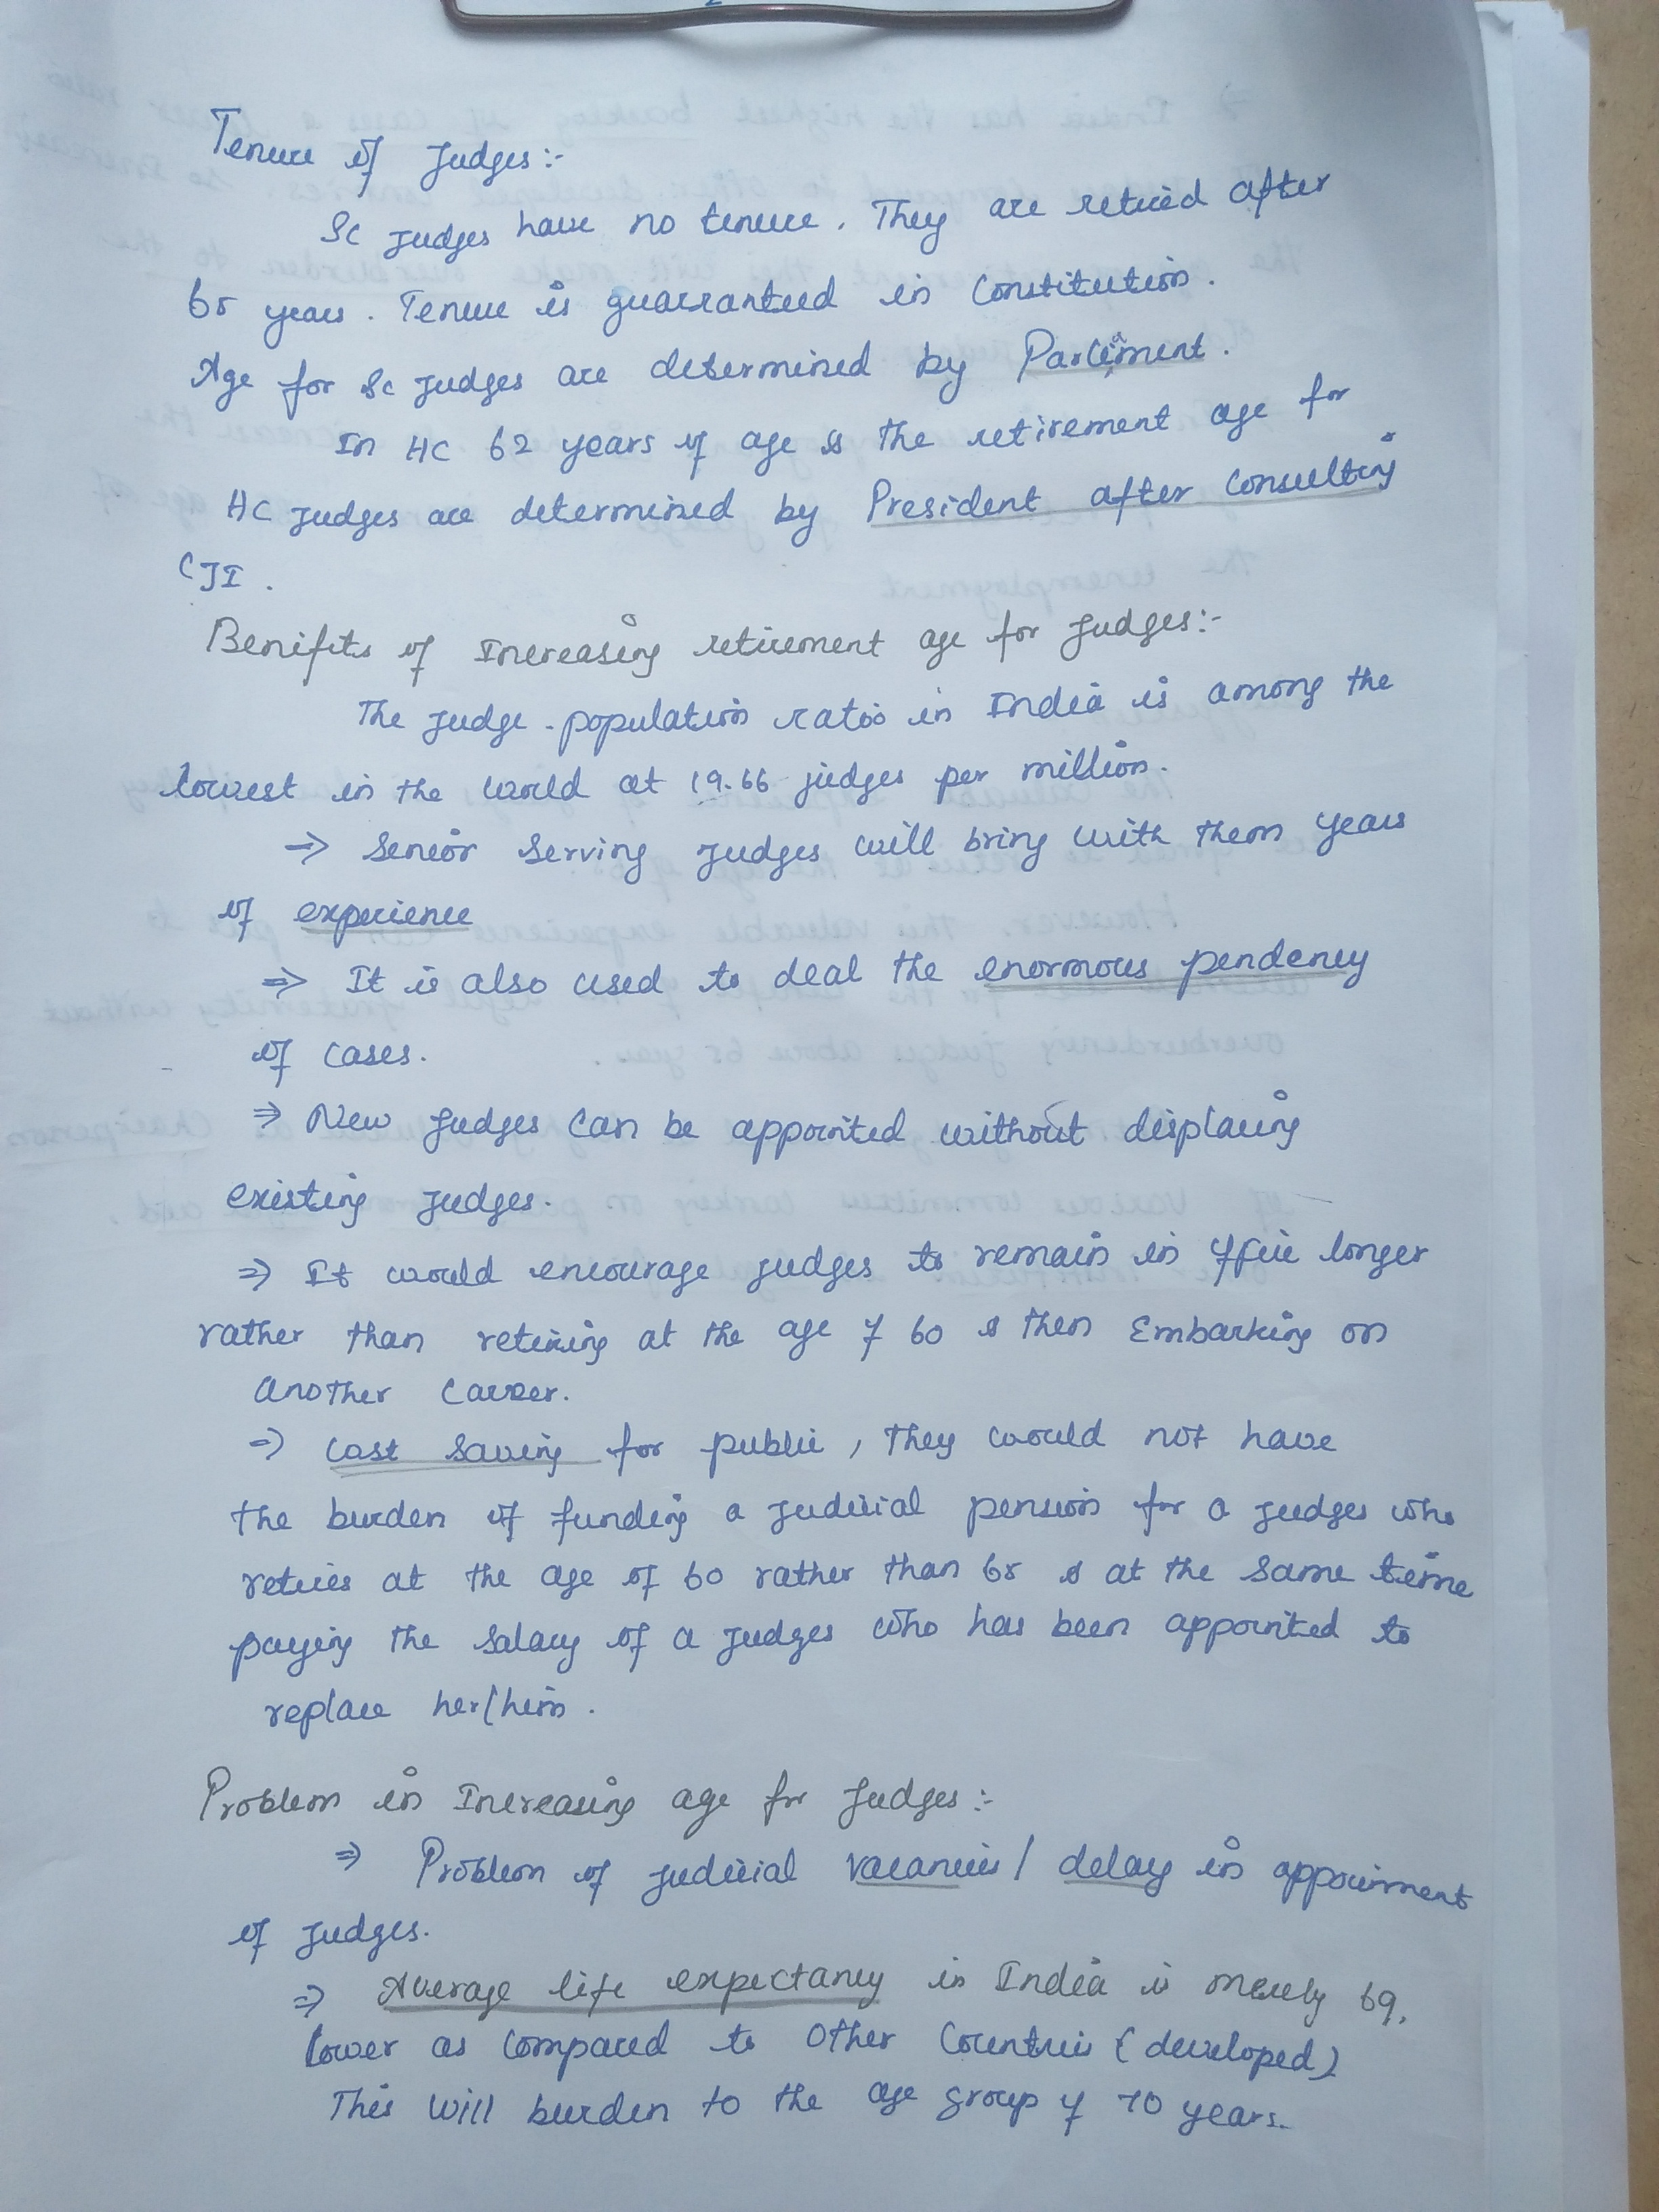 Tenure of Judges:-
SC Judges have no tenure. They are retired after
65 years. Tenure is guarranteed in Constitution.
Age for SC Judges are determined by Parliament.
In HC 62 years of age is the retirement age for
HC Judges are determined by President after consulting
CJI.
Benifits of Increasing retirement age for Judges:-
The Judge-population ratio in India is among the
lowest in the world at 19.66 judges per million.
⇒ Senior Serving Judges will bring with them years
of experience
⇒ It is also used to deal the enormous pendency
of cases.
⇒ New Judges can be appointed without displacing
existing Judges.
⇒ It would encourage judges to remain in office longer
rather than retiring at the age of 60 & then Embarking on
another Career.
⇒ Cost saving for public, they would not have
the burden of funding a judicial pension for a judges who
retires at the age of 60 rather than 65 & at the same time
paying the salary of a judges who has been appointed to
replace her/him.
Problem in Increasing age for Judges:-
⇒ Problem of judicial vacancies / delay in appoinment
of Judges.
⇒ Average life expectancy in India is merely 69,
lower as compared to other Countries (developed)
This will burden to the age group of 70 years.